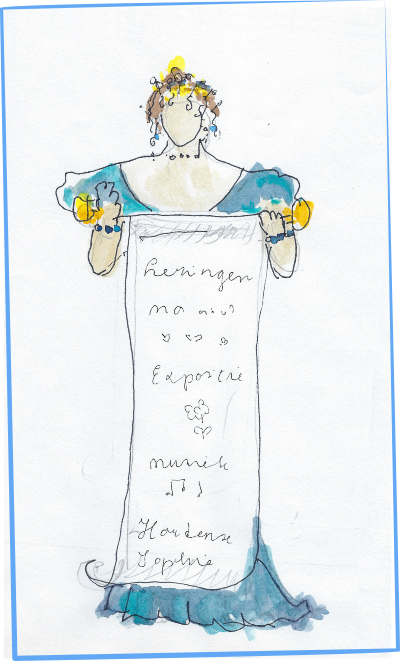 Lezingen
na
Expositie
muziek
Hortense
Sophie